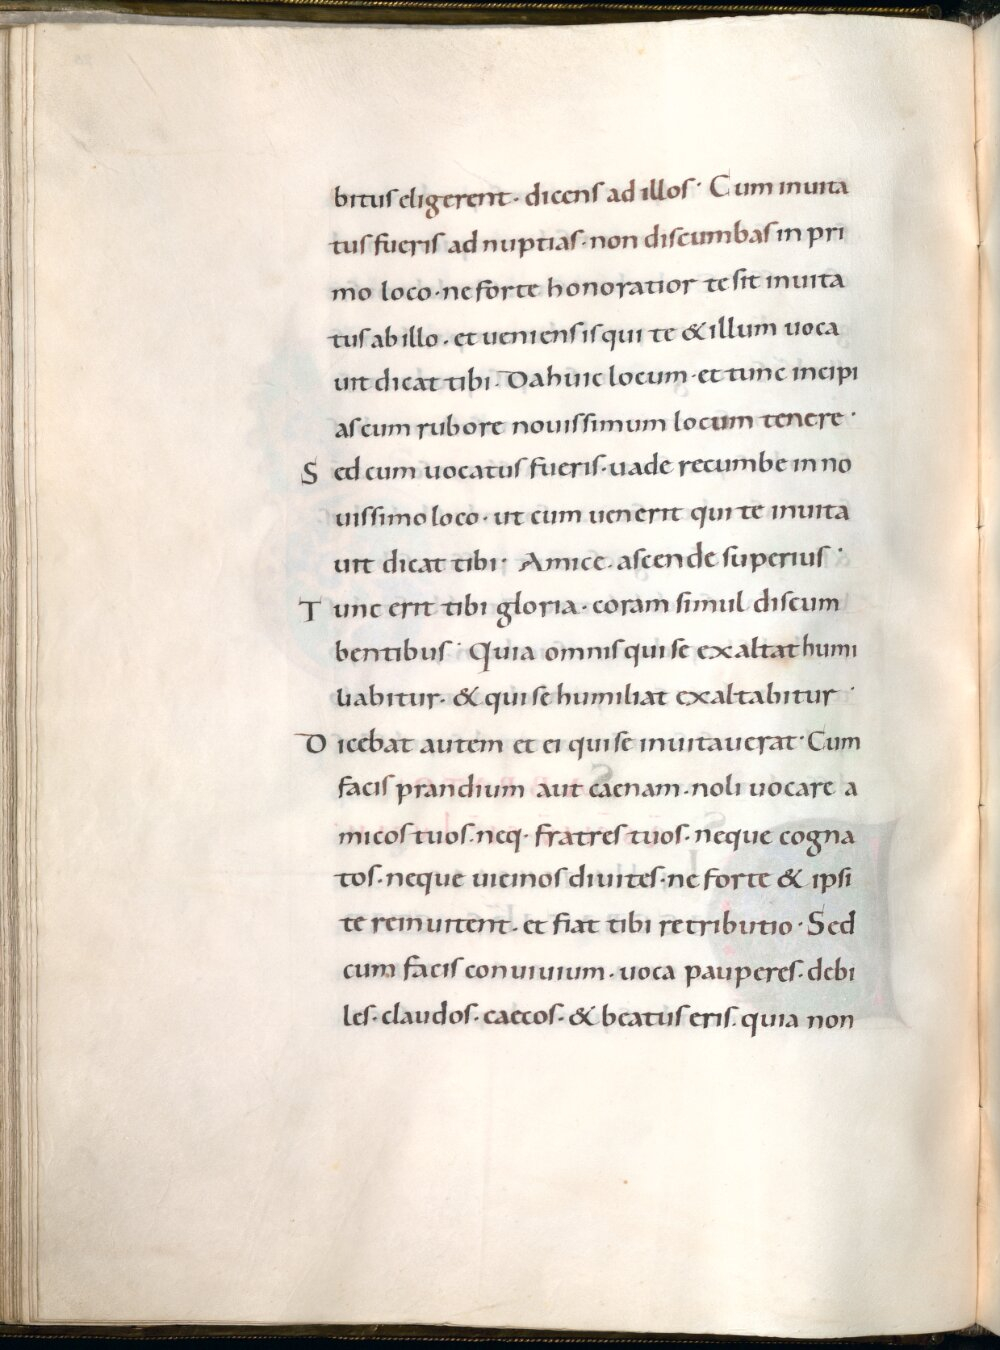 bitus eligerent · dicens ad illos · Cum inuita
tus fueris ad nuptias · non discumbas in pri
mo loco · ne forte honoratior te sit inuita
tus ab illo · et ueniens is qui te & illum uoca
uit dicat tibi · Da huic locum · et tunc incipi
as cum rubore nouissimum locum tenere ·
Sed cum uocatus fueris · uade recumbe in no
uissimo loco · ut cum uenerit qui te inuita
uit dicat tibi · Amice · ascende superius ·
Tunc erit tibi gloria · coram simul discum
bentibus · Quia omnis qui se exaltat humi
liabitur · & qui se humiliat exaltabitur ·
Dicebat autem et ei qui se inuitauerat · Cum
facis prandium aut caenam · noli uocare a
micos tuos · neq· fratres tuos · neque cogna
tos · neque uicinos diuites · ne forte & ipsi
te reinuitent · et fiat tibi retributio · Sed
cum facis conuiuium · uoca pauperes · debi
les · claudos · caecos · & beatus eris · quia non